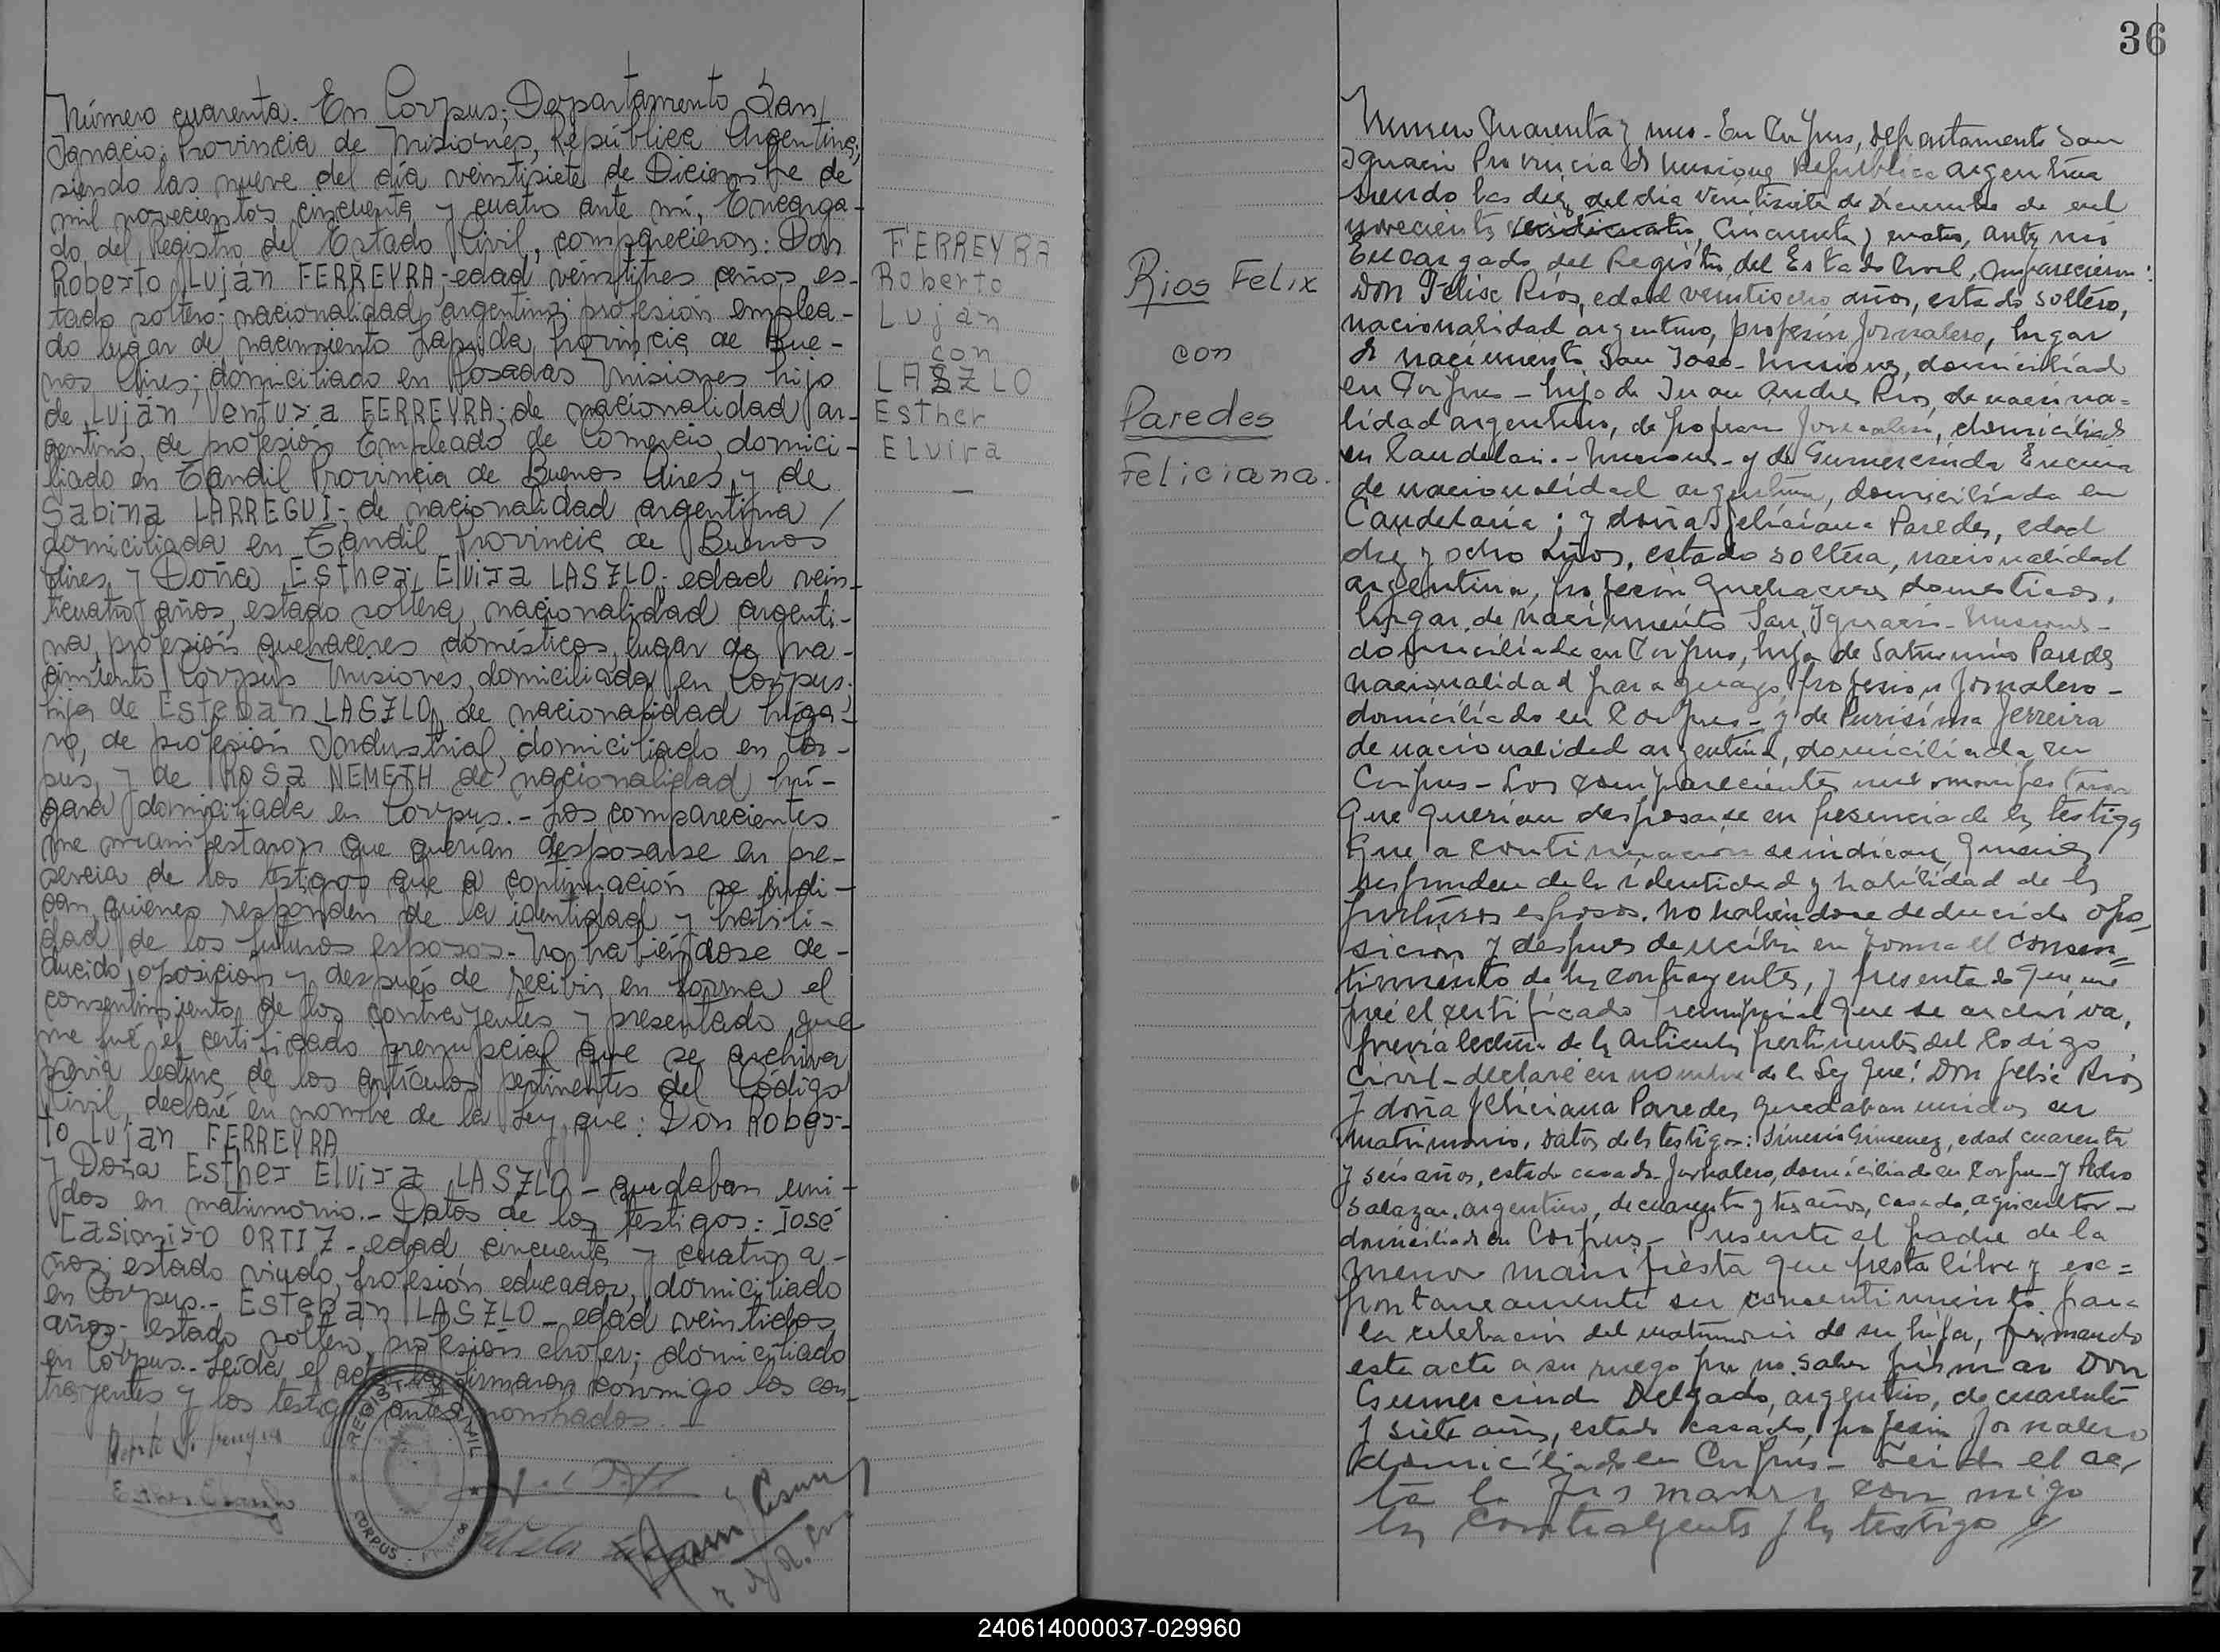 Número cuarenta. En Corpus; Departamento San
Ignacio; Provincia de Misiones, República Argentina;
siendo las nueve del día veintisiete de Diciembre de
mil novecientos cincuenta y cuatro ante mí, Encarga-
do del Registro del Estado Civil, comparecieron: Don
Roberto Luján FERREYRA; edad veintitres años es-
tado soltero; nacionalidad argentino; profesión emplea-
do lugar de nacimiento Laprida, Provincia de Bue-
nos Aires; domiciliado en Posadas Misiones hijo
de Luján Ventura FERREYRA; de nacionalidad ar-
gentino, de profesión Empleado de Comercio, domici-
liado en Tandil Provincia de Buenos Aires y de
Sabina LARREGUI; de nacionalidad argentina /
domiciliada en Tandil Provincia de Buenos
Aires y Doña Esther Elvira LASZLO; edad vein-
ticuatro años, estado soltera, nacionalidad argenti-
na, profesión quehaceres domésticos, lugar de na-
cimiento Corpus Misiones, domiciliada en Corpus;
hija de Esteban LASZLO, de nacionalidad húga-
ro, de profesión Industrial, domiciliado en Cor-
pus, y de Rosa NEMETH de nacionalidad hún-
gara domiciliada en Corpus.- Los comparecientes
me manifestaron que querían desposarse en pre-
sencia de los testigos que a continuación se indi-
can, quienes responden de la identidad y habili-
dad de los futuros esposos. No habiéndose de-
ducido oposición y después de recibir en forma el
consentimiento de los contrayentes y presentado que
me fué el certificado prenupcial que se archiva
previa lectura de los artículos pertinentes del Código
Civil, declaré en nombre de la Ley que: Don Rober-
to Luján FERREYRA
y Doña Esther Elvira LASZLO - quedaban uni-
dos en matrimonio.- Datos de los testigos: José
Casimiro ORTIZ - edad cincuenta y cuatro a-
ños; estado viudo, profesión educador, domiciliado
en Corpus.- Esteban LASZLO - edad veintidos
años; estado soltero, profesión chofer; domiciliado
en Corpus.- Leída el acta la firmaron conmigo los con-
trayentes y los testigos antes nombrados. -
REGISTRO CIVIL
CORPUS
FERREYRA
Roberto
Luján
con
LASZLO
Esther
Elvira
36
Rios Felix
con
Paredes
Feliciana.
Numero Cuarenta y uno - En Corpus, departamento San
Ignacio Provincia de Misiones Republica argentina
siendo las diez del dia veintisiete de Diciembre de mil
novecientos veinticuatro, Cincuenta y cuatro, ante mi
Encargado del Registro del Estado Civil, comparecieron:
Don Felix Rios, edad veintiocho años, estado soltero,
nacionalidad argentino, profesión jornalero, lugar
de nacimiento San José - Misiones, domiciliado
en Corpus - hijo de Juan Andres Rios, de naciona=
lidad argentino, de profesion jornalero, domiciliado
en Candelari.- Misiones - y de Gumercinda Encina
de nacionalidad argentina, domiciliada en
Candelaria; y doña Feliciana Paredes, edad
diez y ocho años, estado soltera, nacionalidad
argentina, profesión quehaceres domesticos,
lugar de nacimiento San Ignacio - Misiones -
domiciliada en Corpus, hija de Saturnino Paredes
nacionalidad paraguayo, profesion jornalero -
domiciliado en Corpus - y de Purisima Ferreira
de nacionalidad argentina, domiciliada en
Corpus - Los comparecientes me manifestaron
que querian desposarse en presencia de los testigos
que a continuacion se indican, quienes
responden de la identidad y habilidad de los
futuros esposos. No habiendose deducido opo
sicion y despues de recibir en forma el consen=
timiento de los contrayentes, y presentado que me
fué el certificado prenupcial que se archiva,
previa lectura de los articulos pertinentes del Codigo
Civil - declaré en nombre de la Ley que: Don Felix Rios
y doña Feliciana Paredes quedaban unidos en
matrimonio. Datos de los testigos: Sinecio Gimenez, edad cuarenta
y seis años, estado casado, jornalero, domiciliado en Corpus - y Pedro
Salazar, argentino, de cuarenta y tres años, casado, agricultor -
domiciliado en Corpus - Presente el padre de la
menor manifiesta que presta libre y esc=
pontaneamente su consentimiento para
la celebracion del matrimonio de su hija, firmando
este acto a su ruego por no saber firmar Don
Gumercindo Delgado, argentino, de cuarenta
y siete años, estado casado, profesión jornalero
domiciliado en Corpus - Leida el ac-
ta la firmaron con migo
los contrayentes y los testigos
240614000037-029960